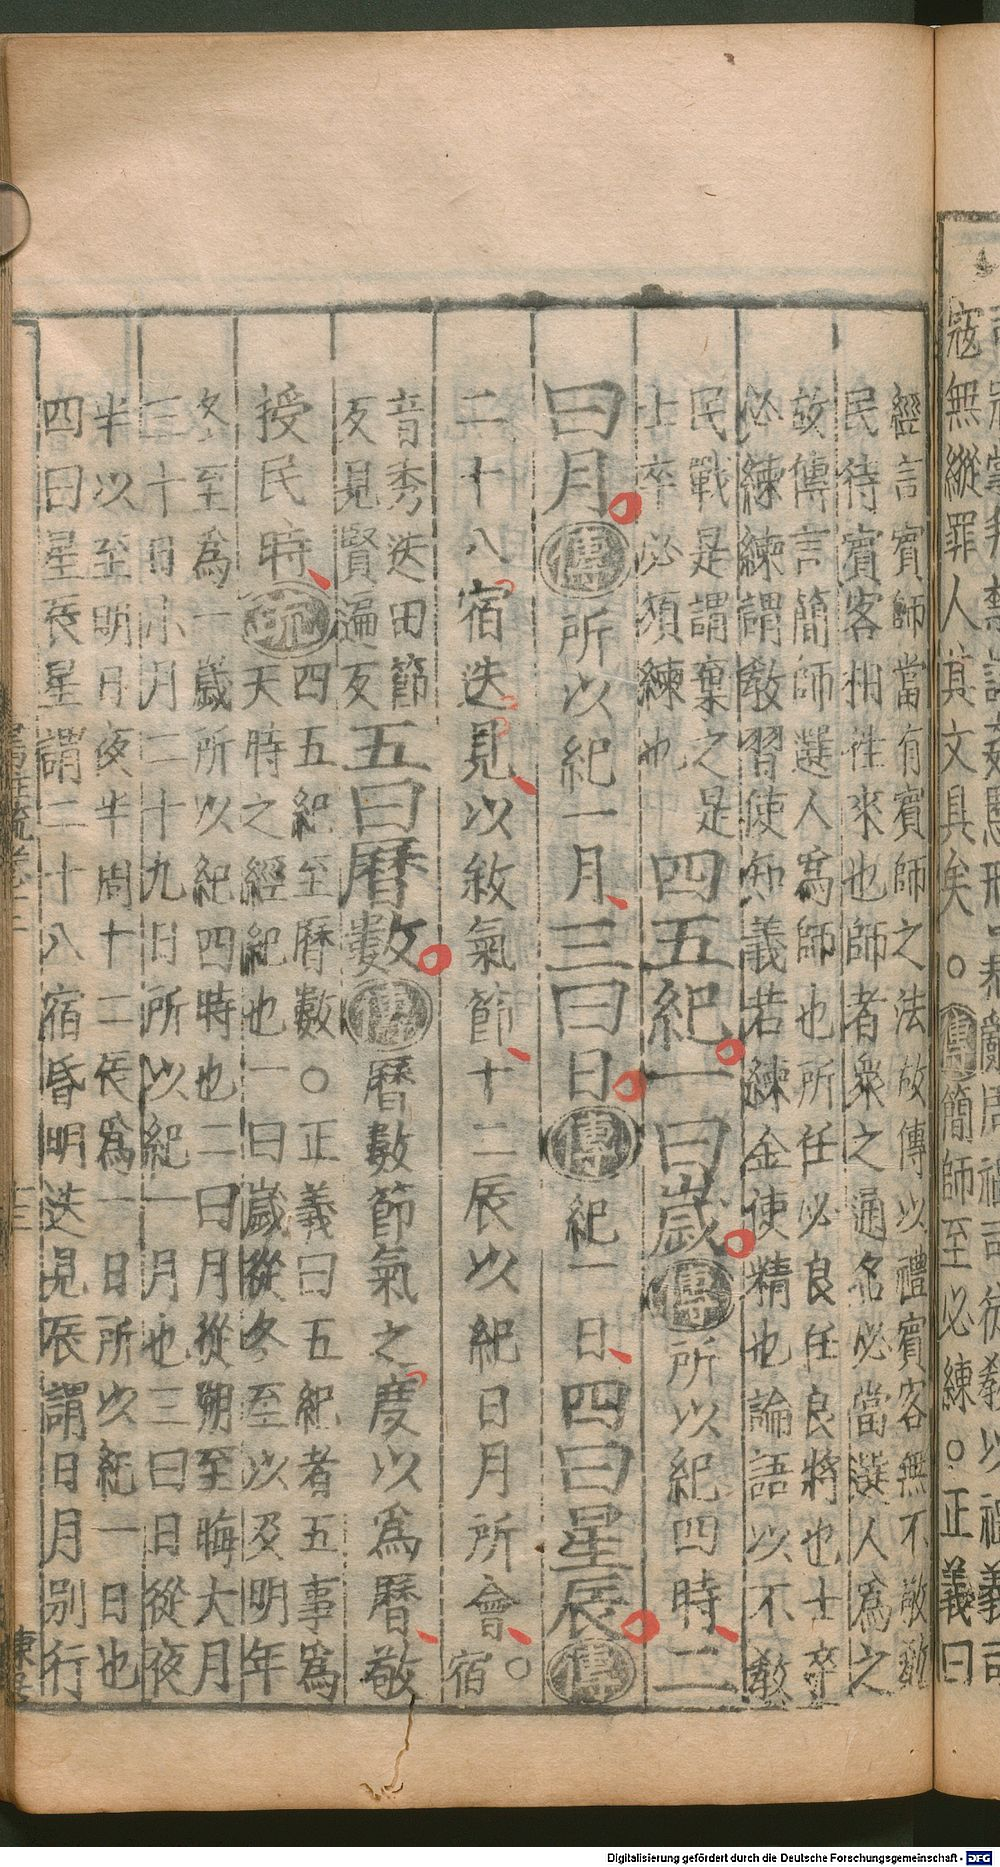 寇無縱罪人其文具矣○傳簡師至必練○正義曰
經言賓師當有賓師之法故傳以禮賓客無不敬敎
民待賓客相往來也師者衆之通名必當選人爲之
故傳言簡師選人爲師也所任必良任良將也士卒
必練練謂敎習使知義若練金使精也論語以不敎
民戰是謂棄之是
士卒必須練也
四五紀一曰歲傳所以紀四時二
曰月傳所以紀一月三曰日傳紀一日四曰星辰傳
二十八宿迭見以敘氣節十二辰以紀日月所會○宿
音秀迭田節
反見賢遍反
五曰曆數傳曆數節氣之度以爲曆敬
授民時疏四五紀至曆數○正義曰五紀者五事爲
天時之經紀也一曰歲從冬至以及明年
冬至爲一歲所以紀四時也二曰月從朔至晦大月
三十日小月二十九日所以紀一月也三曰日從夜
半以至明日夜半周十二辰爲一日所以紀一日也
四曰星辰星謂二十八宿昏明迭見辰謂日月別行
Digitalisierung gefördert durch die Deutsche Forschungsgemeinschaft - DFG